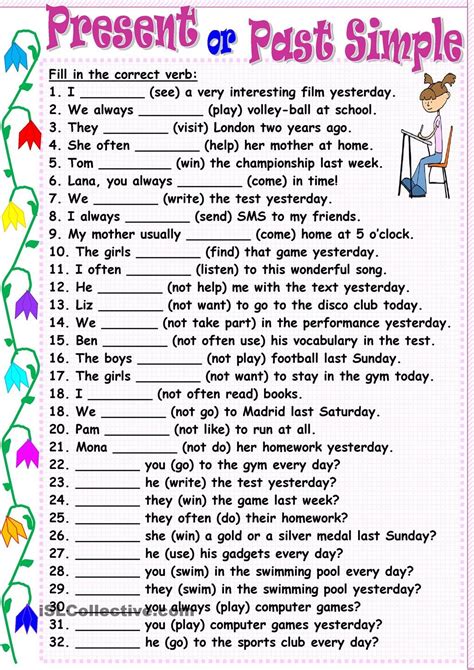 Present or Past Simple
Fill in the correct verb:
1. I _________ (see) a very interesting film yesterday.
2. We always _________ (play) volley-ball at school.
3. They _________ (visit) London two years ago.
4. She often _________ (help) her mother at home.
5. Tom _________ (win) the championship last week.
6. Lana, you always _________ (come) in time!
7. We _________ (write) the test yesterday.
8. I always _________ (send) SMS to my friends.
9. My mother usually _________ (come) home at 5 o'clock.
10. The girls _________ (find) that game yesterday.
11. I often _________ (listen) to this wonderful song.
12. He _________ (not help) me with the text yesterday.
13. Liz _________ (not want) to go to the disco club today.
14. We _________ (not take part) in the performance yesterday.
15. Ben _________ (not often use) his vocabulary in the test.
16. The boys _________ (not play) football last Sunday.
17. The girls _________ (not want) to stay in the gym today.
18. I _________ (not often read) books.
18. We _________ (not go) to Madrid last Saturday.
20. Pam _________ (not like) to run at all.
21. Mona _________ (not do) her homework yesterday.
22. _________ you (go) to the gym every day?
23. _________ he (write) the test yesterday?
24. _________ they (win) the game last week?
25. _________ they often (do) their homework?
26. _________ she (win) a gold or a silver medal last Sunday?
27. _________ he (use) his gadgets every day?
28. _________ you (swim) in the swimming pool every day?
29. _________ they (swim) in the swimming pool yesterday?
30. _________ you always (play) computer games?
31. _________ you (play) computer games yesterday?
32. _________ he (go) to the sports club every day?
iSLCollective.com